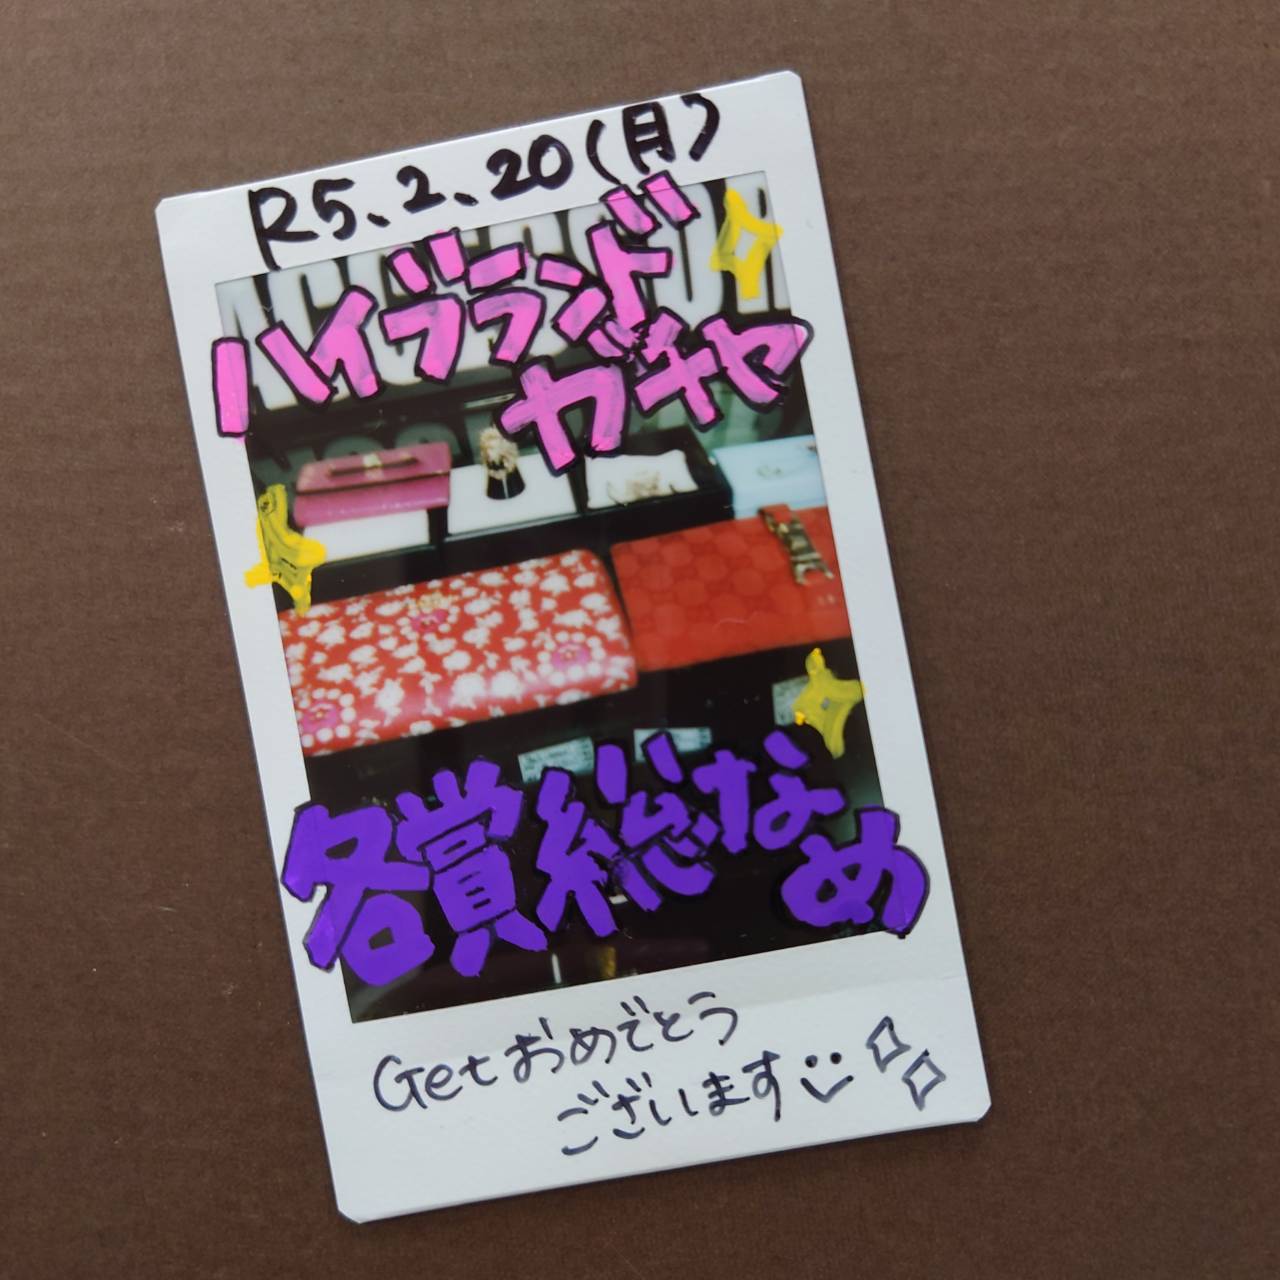 R5、2、20(月)
ハイブランド
ガチャ
各賞総なめ
Getおめでとう
ございます